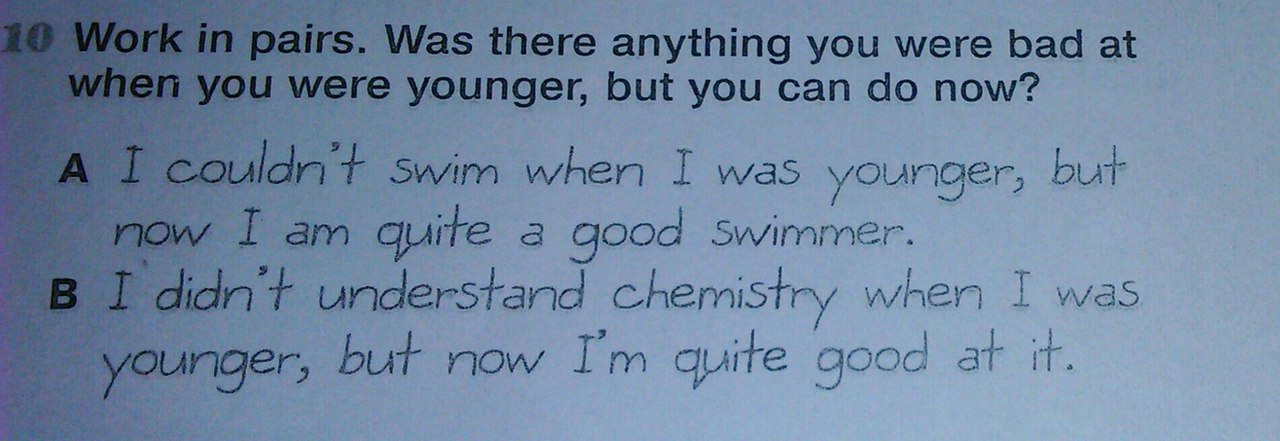 10 Work in pairs. Was there anything you were bad at
when you were younger, but you can do now?
A I couldn't swim when I was younger, but
now I am quite a good swimmer.
B I didn't understand chemistry when I was
younger, but now I'm quite good at it.